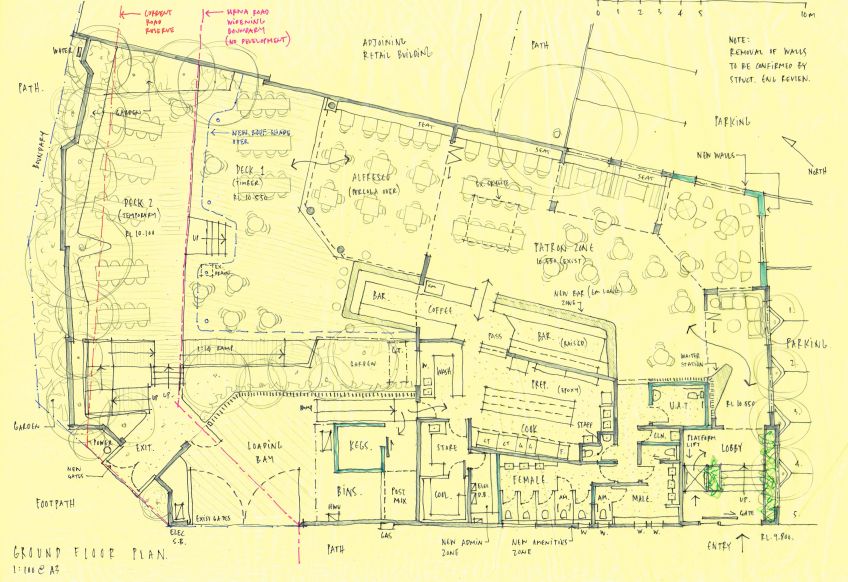 CURRENT
ROAD
RESERVE
ROAD
WIDENING
BOUNDARY
(NO DEVELOPMENT)
0 1 2 3 4 5 10 m
NOTE:
REMOVAL OF WALLS
TO BE CONFIRMED BY
STRUCT. ENG REVIEW.
ADJOINING
RETAIL BUILDING
PATH
WATER
PATH.
BOUNDARY
GARDEN
NEW ROOF SHADE
OVER
PARKING
NEW WALLS
NORTH
SEAT
SEAT
SEAT
DECK 1
(TIMBER)
RL.10.550
ALFRESCO
(PERGOLA OVER)
DECK 2
(TEMPORARY)
RL 10.100
UP
EX.
DRAIN
PATRON ZONE
10.550 (EXIST)
NEW BAR (6M LONG)
ZONE
BAR.
COFFEE
PASS
BAR.
(RAISED)
PARKING
1.
2.
3.
4.
5.
WAITER
STATION
1:14 RAMP
GARDEN
WASH
PREP.
(EPOXY)
COOK
U.A.T.
RL 10.550
STAFF
GARDEN
UP
UP.
POWER
EXIT.
NEW
GATES
LOADING
BAY
RAMP
KEGS.
STORE
CLN.
PLATFORM
LIFT
LOBBY
BINS.
POST
MIX
COOL
ELEC
D.B.
FEMALE
AM.
AM.
MALE.
UP.
GATE
FOOTPATH
EXIST GATES
HWU
ELEC
S.B.
GAS
PATH
NEW ADMIN
ZONE
NEW AMENITIES
ZONE
W.
W.
W.
ENTRY
RL.9.800.
GROUND FLOOR PLAN.
1:100 @ A3